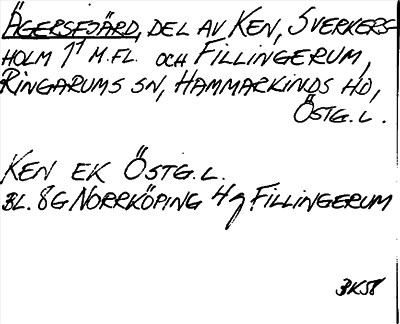 ÅGERSFJÄRD, DEL AV KEN, SVERKERS-
HOLM 1¹ M.FL. OCH FILLINGERUM,
RINGARUMS SN, HAMMARKINDS HD,
ÖSTG. L.
KEN EK ÖSTG. L.
BL. 8G NORRKÖPING 4g FILLINGERUM
BK58